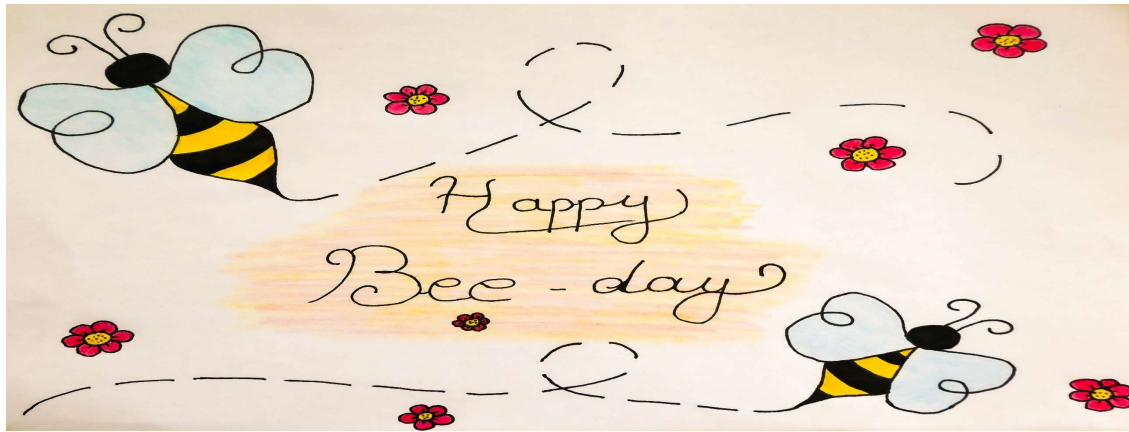 Happy
Bee - day